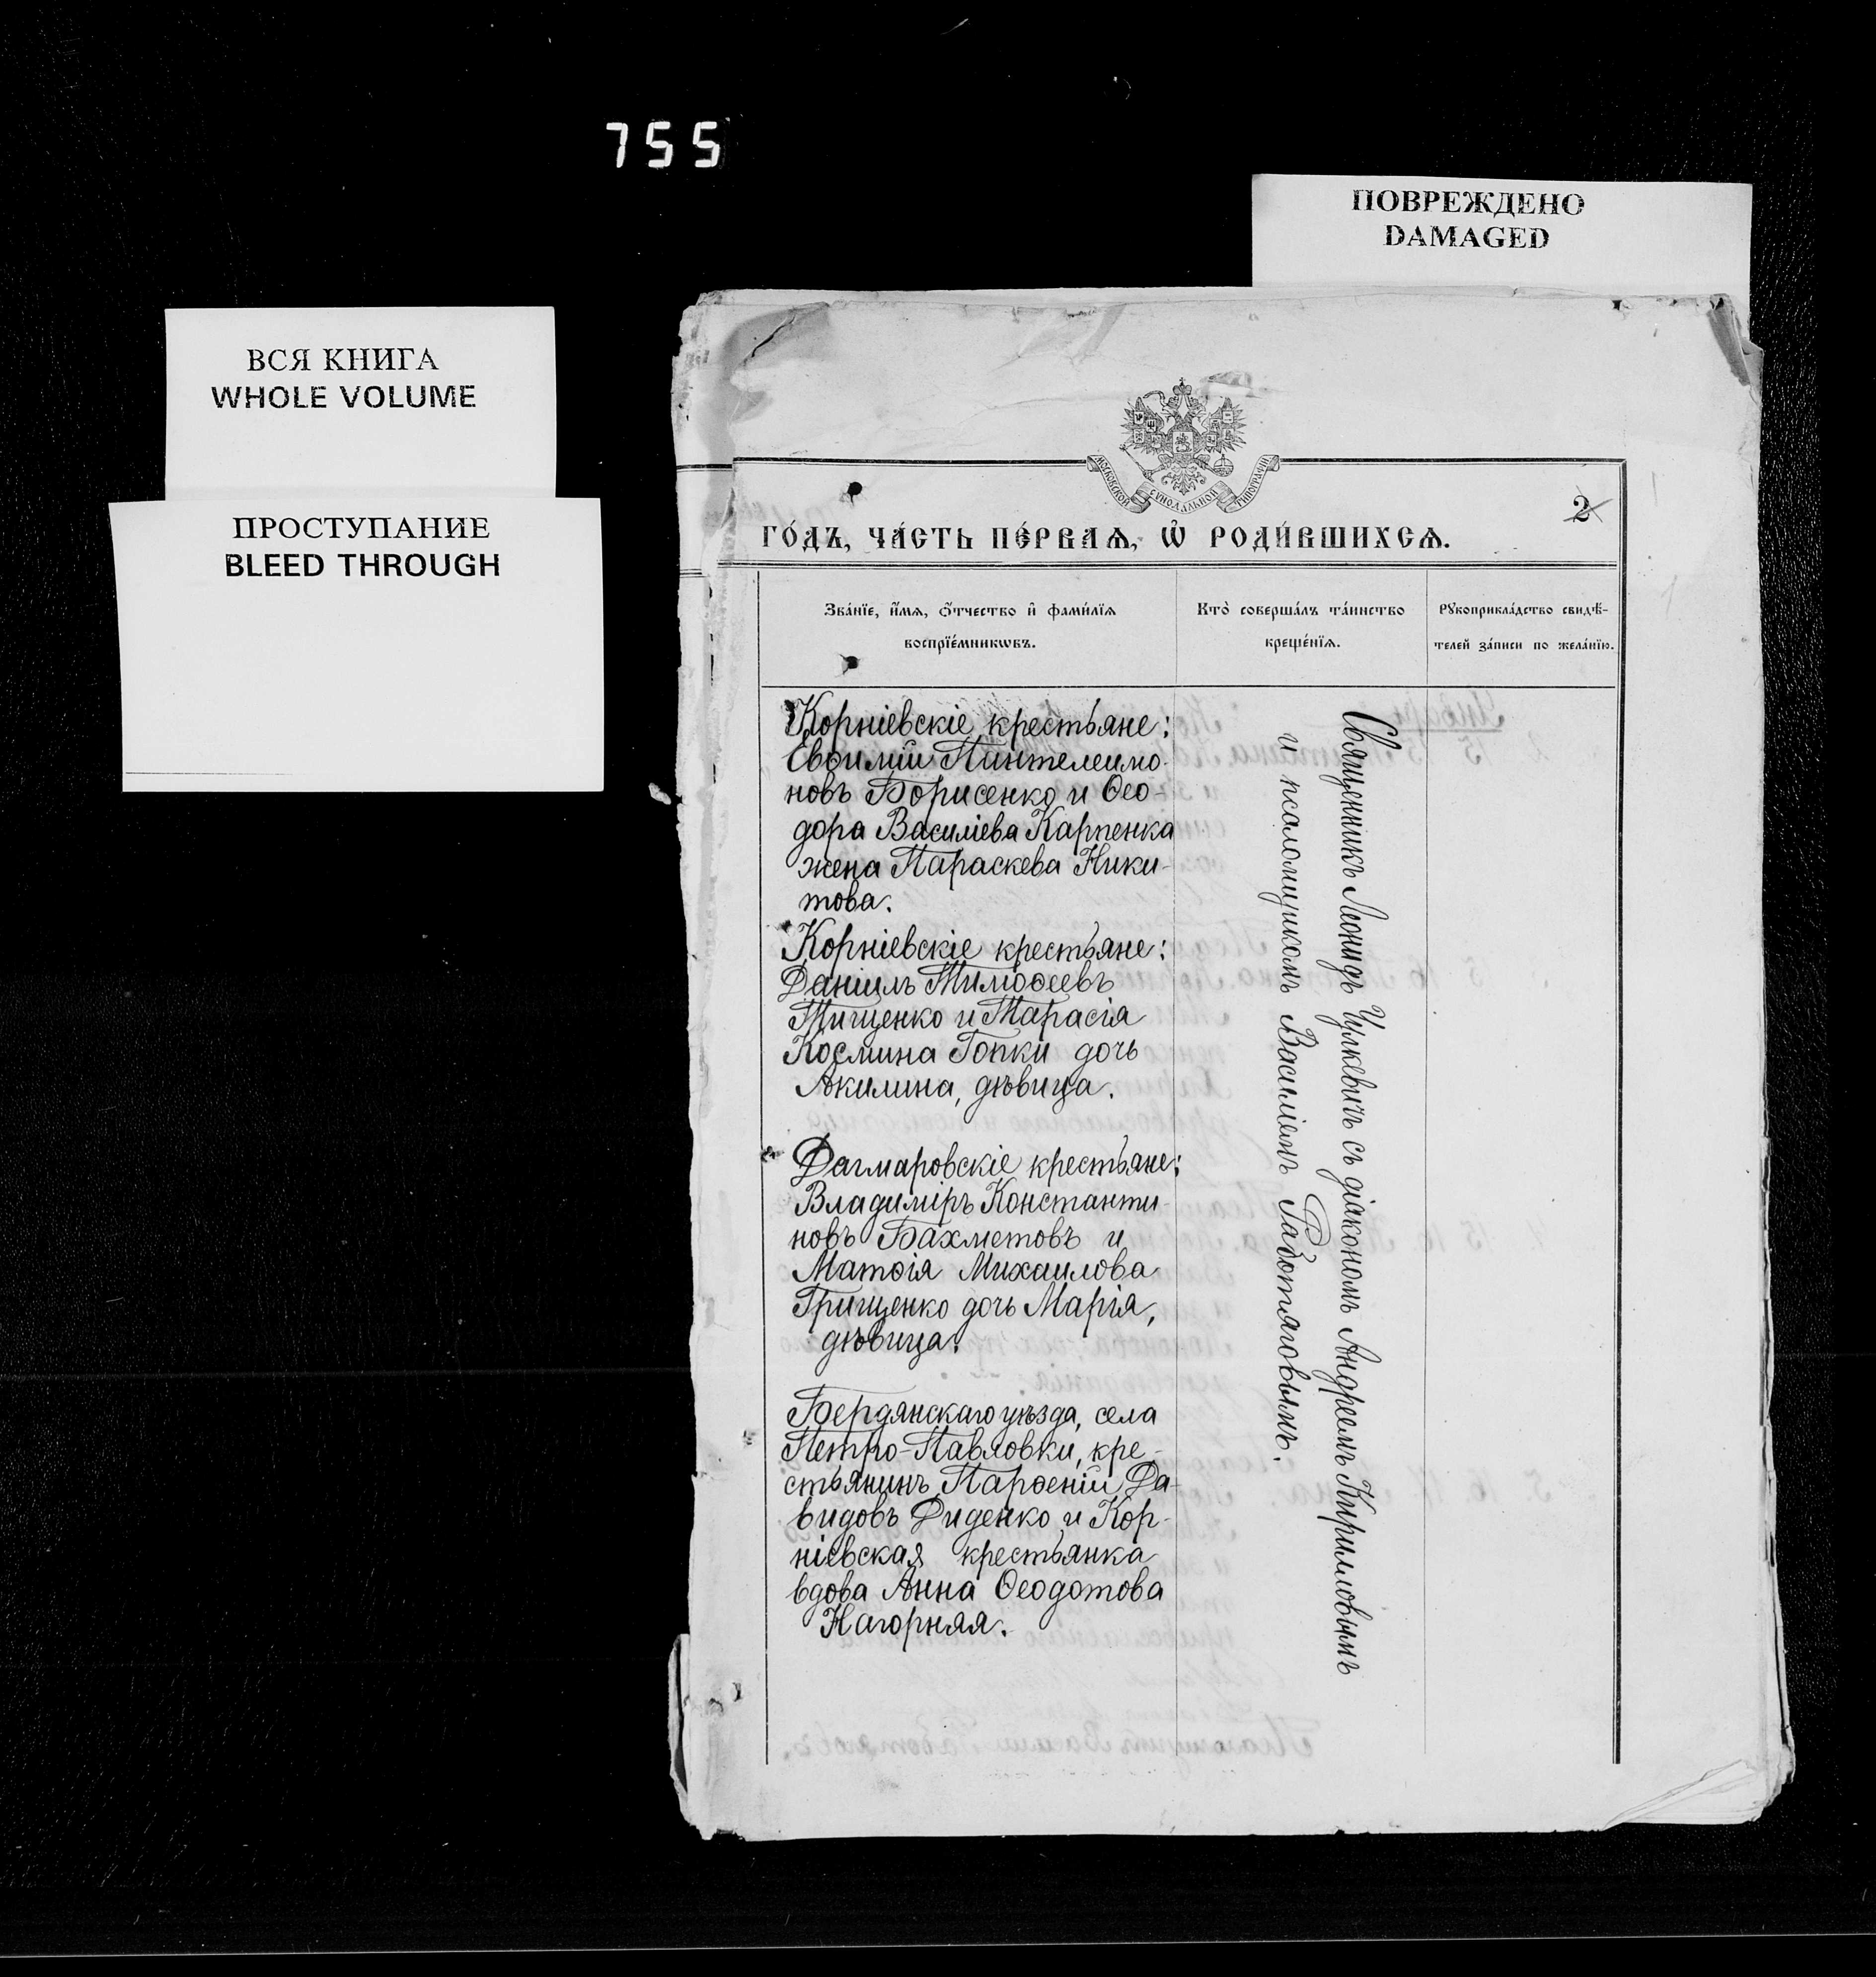 755
ПОВРЕЖДЕНО
DAMAGED
ВСЯ КНИГА
WHOLE VOLUME
ПРОСТУПАНИЕ
BLEED THROUGH
МОСКОВСКОЙ СУНОДАЛЬНОЙ ТИПОГРАФІИ
2
ГО́ДЪ, ЧА́СТЬ ПЕ́РВАѦ, Ѡ҆ РОДИ́ВШИХСѦ.
Зва́нїе, и҆́мѧ, ѻ҆́тчество и҆ фами́лїѧ
воспрїе́мникѡвъ.
Кто̀ соверша́лъ та́инство
креще́нїѧ.
Рꙋкоприкла́дство свидѣ́-
телей за́писи по жела́нїю.
Корніевскіе крестьяне:
Евѳимій Пантелеимо-
новъ Борисенко и Ѳео-
дора Василіева Карпенка
жена Параскева Ники-
това.
Корніевскіе крестьяне:
Даніилъ Тимоѳеевъ
Тищенко и Тарасія
Космина Гопки дочь
Акилина, дѣвица.
Дагмаровскіе крестьяне:
Владиміръ Константи-
новъ Бахметовъ и
Матѳія Михаилова
Грищенко дочь Марія,
дѣвица.
Бердянскаго уѣзда, села
Петро-Павловки, кре-
стьянинъ Парѳеній Да-
видовъ Диденко и Кор-
ніевская крестьянка
вдова Анна Ѳеодотова
Нагорняя.
Священникъ Леонидъ Цулкевичъ съ діакономъ Андреемъ Кирилловымъ
и псаломщикомъ Василіемъ Работяговымъ.